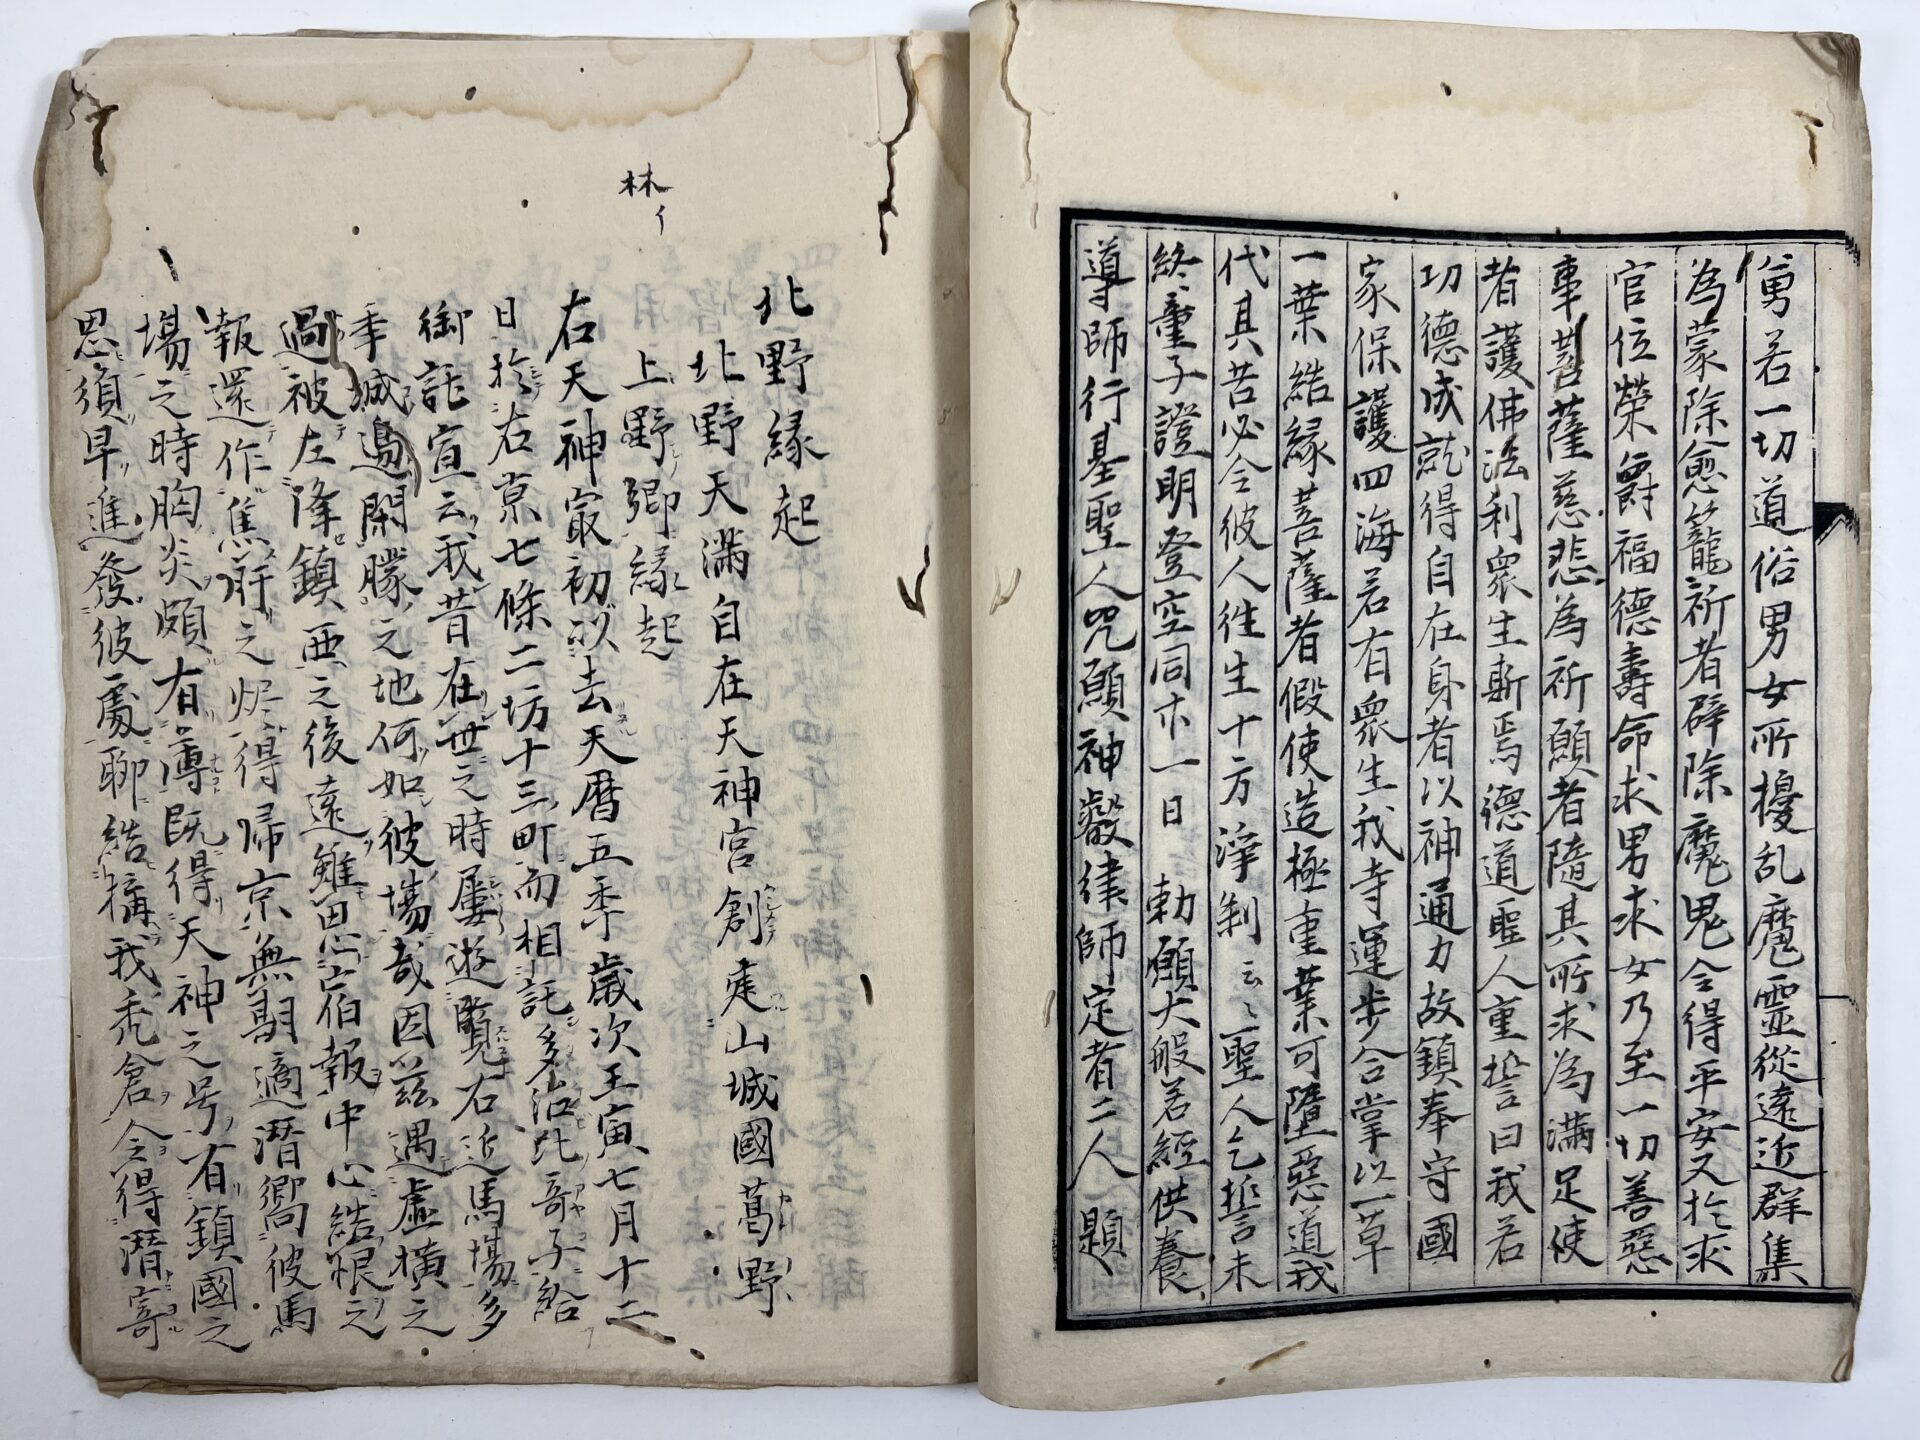 勇若一切道俗男女所擾乱魔霊従遠近群集
為蒙除愈籠祈者辟除魔鬼令得平安又於求
官位榮爵福德壽命求男求女乃至一切善惡
事菩薩慈悲為祈願者隨其所求為滿足使
者護佛法利衆生斯焉德道聖人重誓曰我若
功德成就得自在身者以神通力故鎮奉守國
家保護四海若有衆生我寺運步合掌以一草
一葉結縁菩薩者假使造極重業可墮惡道我
代其苦必令彼人徃生十方淨剎云々聖人乞誓未
終童子證明登空同廿一日 勅願大般若經供養
導師行基聖人咒願神叡律師定者二人 題
北野縁起
北野天滿自在天神宮創建山城國葛野
林イ
上野鄉縁起
右天神㝡初以去天曆五季歲次壬寅七月十二
日於右京七條二坊十三町而相託多治比哥子給
御託宣云我昔在世之時屡遊覽右近馬場多
季城邊閑朦之地何如彼場哉因茲遇虛橫之
過被左降鎮西之後遠雖思占伯報中心結恨之
報還作焦肝之炉得帰京無期適潛嚮彼馬
場之時胸炎頗有薄既得天神之号有鎮國之
思須早進發彼處聊結構我禿倉令得潛寄